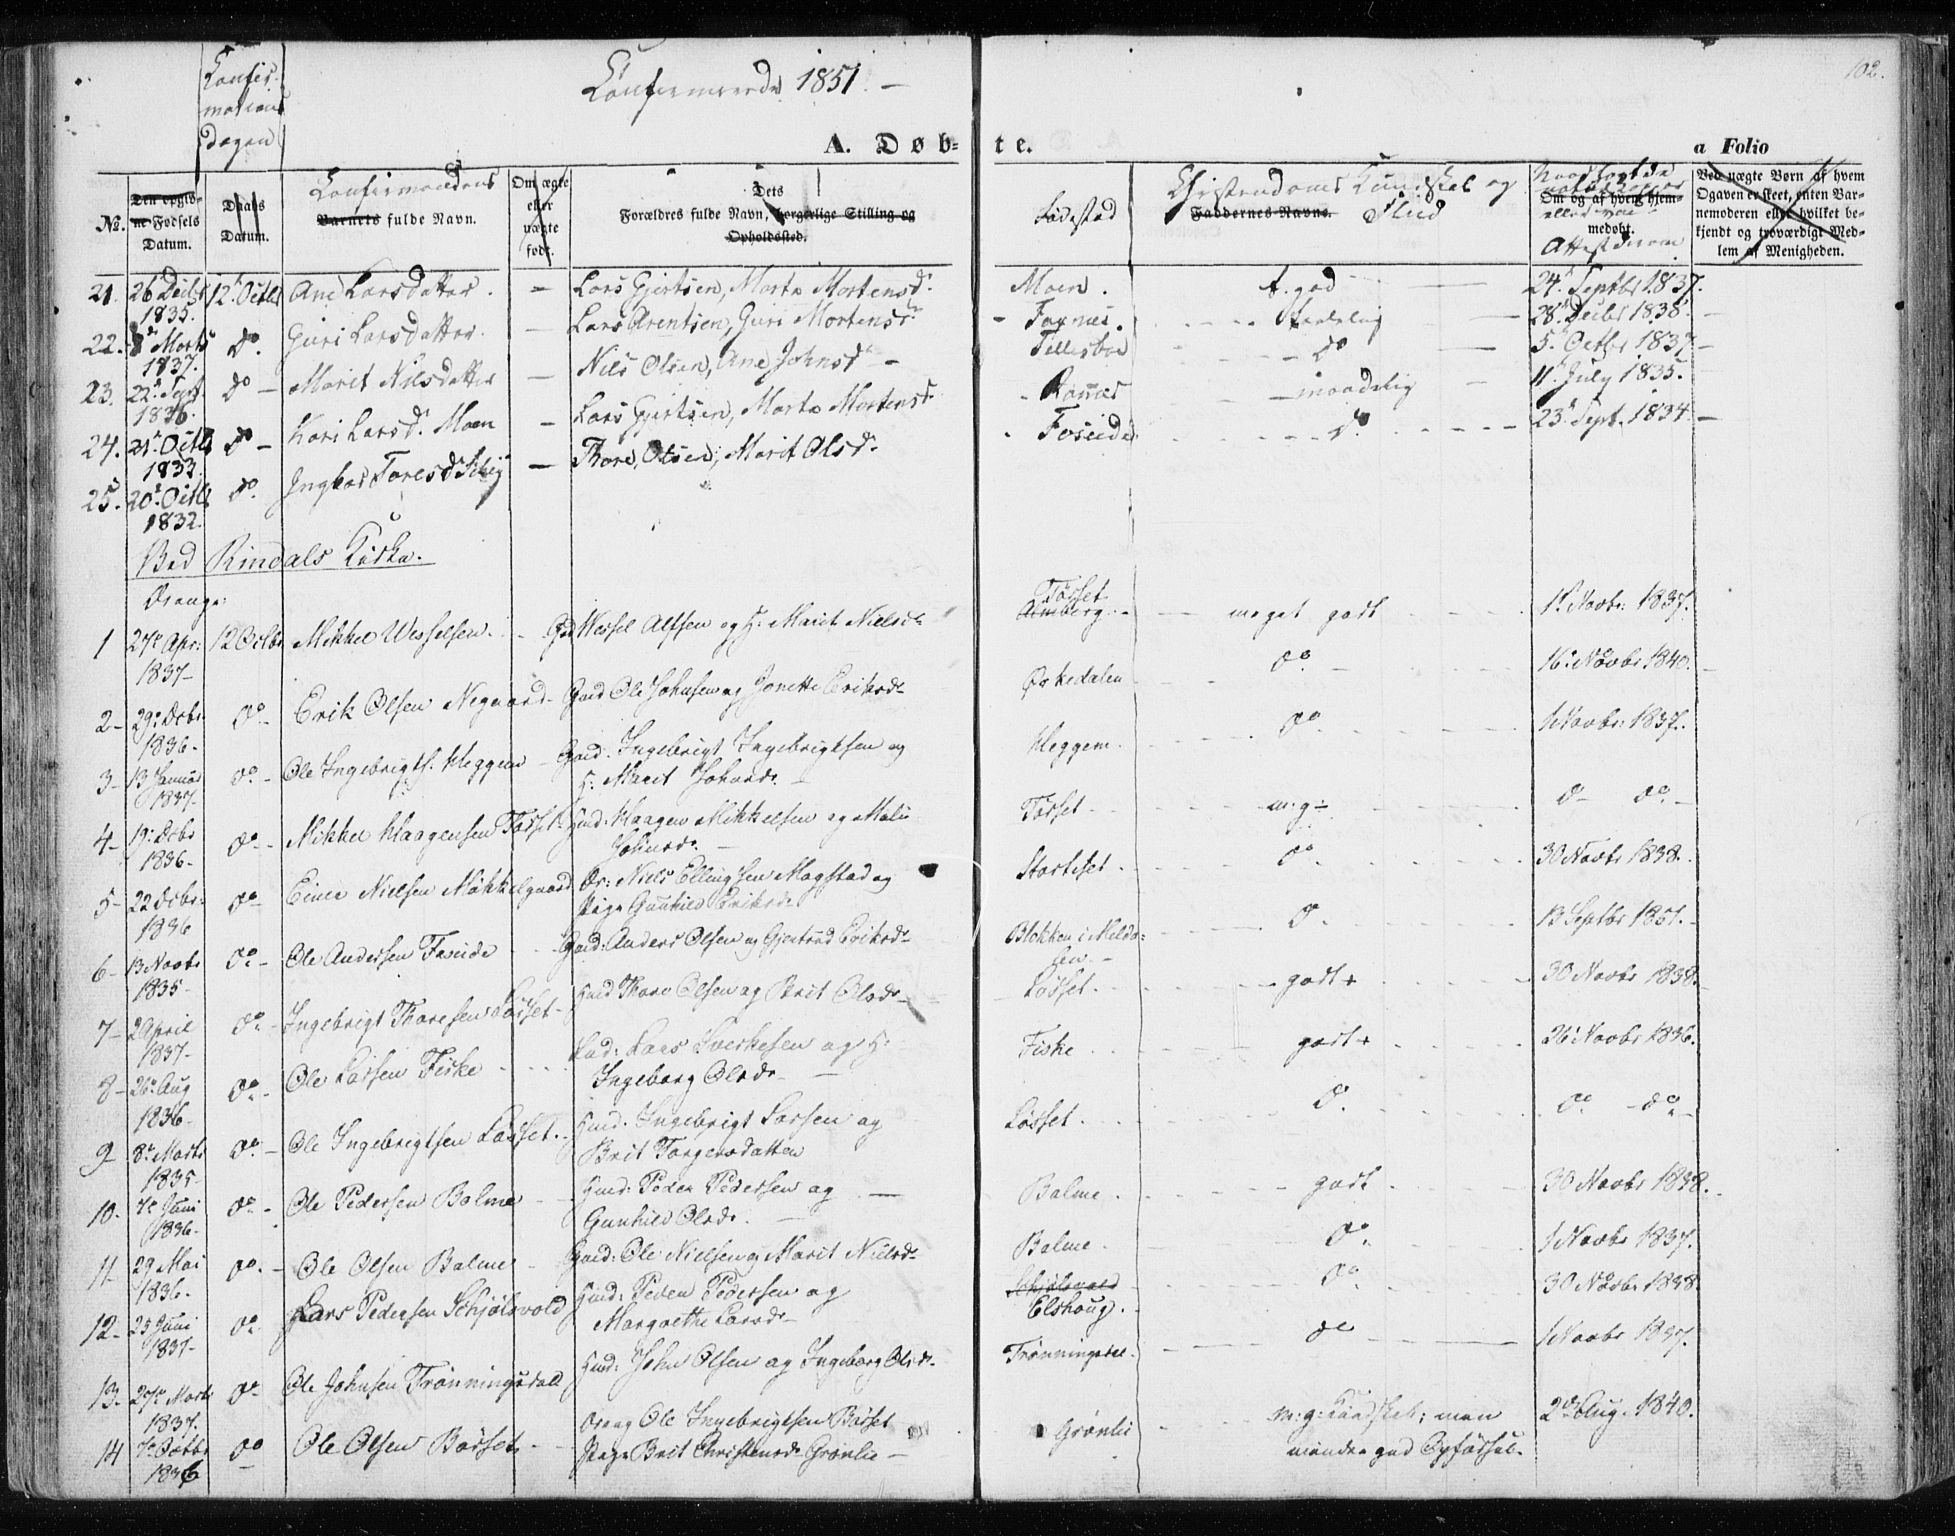 Confirmerede 1851. —
102.
Confir-
mations
Dagen
A. Døb-
te.
a Folio
№.
Den opgiv-
ne Fødsels
Datum.
Daabs
Datum.
Confirmandens
Barnets fulde Navn.
Om ægte
eller
uægte
født.
Dets
Forældres fulde Navn, borgerlige Stilling og
Opholdssted.
Fødested
Christendoms Kundskab og
Faddernes Navne. Flid
Om og af hvem hjem-
medøbt.
Ved uægte Børn af hvem
Opgaven er skeet, enten Bar-
nemoderen eller hvilket be-
kjendt og troværdigt Med-
lem af Menigheden.
21. 26 Decbr 1835. 12. Octbr Ane Larsdatter. — Lars Gjertsen, Marta Mortensd. Moen. t. god — 24. Septbr 1837.
22. Marts 1837. do. Guri Larsdatter. — Lars Arentsen, Guri Mortensd. Foxnes. — 28. Decbr 1838. —
23. 22. Sept. 1836. do — Marit Nilsdatter — Nils Olsen, Ane Johnsd — do — 5. Octbr 1837 —
24. 21. Octbr 1833. do — Kari Larsd. Moen — Lars Gjertsen, Marta Mortensd. maadelig — 11. July 1835.
25. 20. Octbr 1832. do. Ingbor Toresd — Thore Olsen, Marit Olsd. Foseide do. 23. Sept. 1834. —
Ved Rindals Kirke.
Drenge:
1 27. Apr: 1837 — 12 Octbr Mikkel Wesselsen. Gmd Wessel Alfsen og H: Marit Nielsd. Tørset Almberg. — meget godt — 1. Novbr: 1837.
2 — 29. Dcbr. 1836 — do — Erik Olsen Negaard — Gmd Ole Johnsen og Jonetta Eriksd. Orkedalen do. 16. Novbr 1840. —
3 — 13 Januar 1837. do — Ole Ingebrigts. Heggem — Gmd. Ingebrigt Ingebrigtsen og H: Marit Johnsd. — Heggem. do 1 Novbr: 1837.
4 — 19. Dcbr 1836 — do — Mikkel Haagensen Tørset. Hmd: Haagen Mikkelsen og Mali Johnsd. — Tørset — m: g — do — do —
5 — 22 Dcbr: 1836 do — Einer Nielsen Møkkelgaard Er: Niels Ellingsen Magstad og Pige Gunhild Eriksd. do. 30 Novbr 1838.
6 — 13 Novbr 1835 — do — Ole Andersen Foseide — Gmd: Anders Olsen og Gjertrud Eriksd. Blokken i Melda- len — do. 13 Septbr 1851. —
7 — 2 April 1837 — do — Ingebrigt Thoresen Løsset — Hmd Thore Olsen og Brit Olsd. — Løsset. godt + 30 Novbr 1838.
8 — 26. Aug 1836 — do — Ole Larsen Fiske Lars Sverkesen og H: Ingeborg Olsd. — Fiske godt + 26. Novbr 1836.
9 8. Marts 1835 — do — Ole Ingebrigtsen Løsset. Hmd. Ingebrigt Larsen og Brit Torgersdatter Løsset. do. do — do —
10. 7. Juni 1836 — do — Ole Pedersen Bolme — Hmd: Peder Pedersen og Gunhild Olsd. — Bolme. godt 30 Novbr 1838.
11 — 29 Mai 1836 — do — Ole Olsen Bolme — Gmd: Ole Nielsen og Marit Nielsd. Bolme. do. 1 Novbr 1837.
12 — 25 Juni 1837 — do. Lars Pedersen Schjølsvold Hmd: Peder Pedersen og Margrethe Larsd. — Schjølsvold Elshoug. do 30 Novbr 1838.
13. 27. Marts 1837. do — Ole Johnsen Trønningsdall Hmd: John Olsen og Ingeborg Olsd. Trønningsdal. do — 1 Novbr 1837.
14 7. Octbr 1836 do Ole Olsen Børset. — Dreng Ole Ingebrigtsen Børset Pige Brit Christensd. Grønlie — Grønlie m: g: Kundskab; men mindre god Opførsel. 2. Aug. 1840.